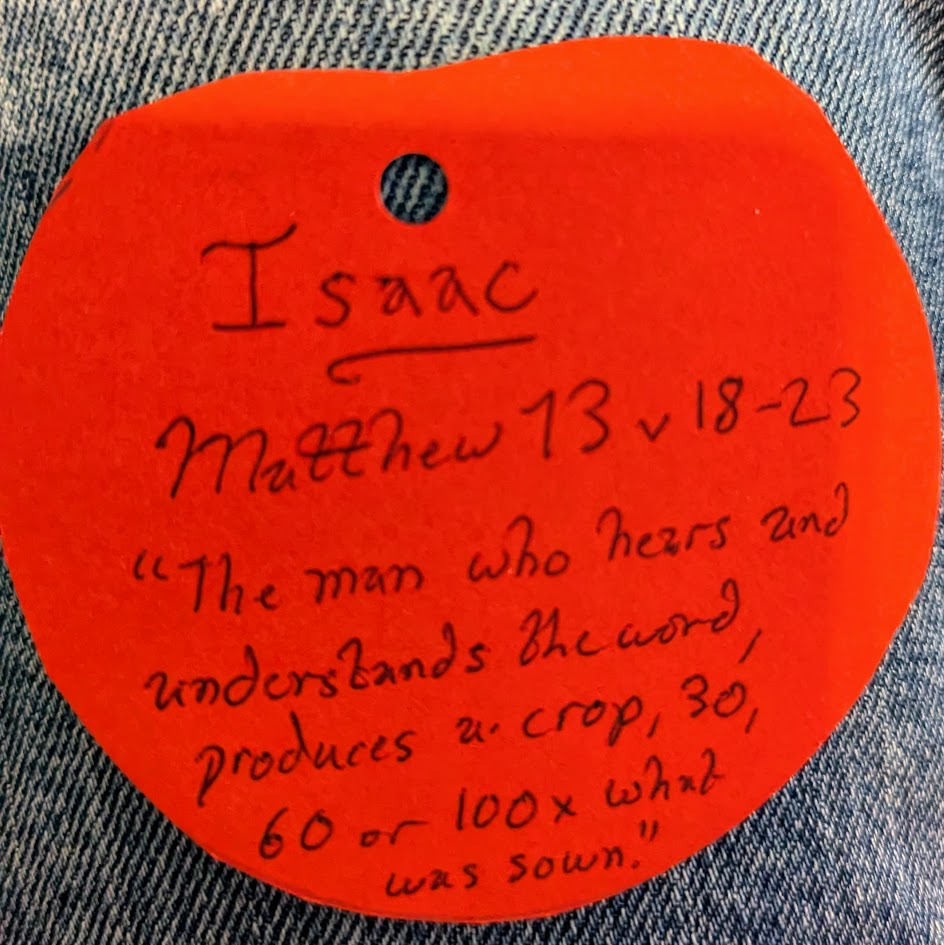 Isaac
Matthew 13 v 18-23
"The man who hears and
understands the word,
produces a crop, 30,
60 or 100x what
was sown."